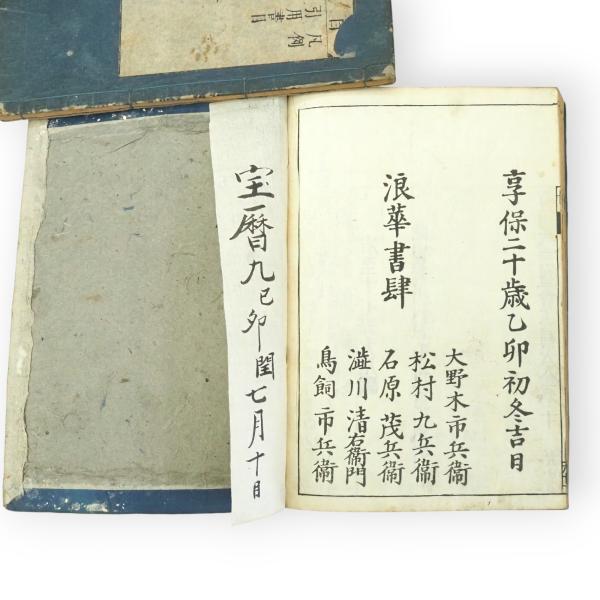 目
凡例
引用書目
享保二十歳乙卯初冬吉日
浪華書肆
大野木市兵衛
松村九兵衛
石原茂兵衛
澁川清右衛門
鳥飼市兵衛
宝暦九己卯閏七月十日